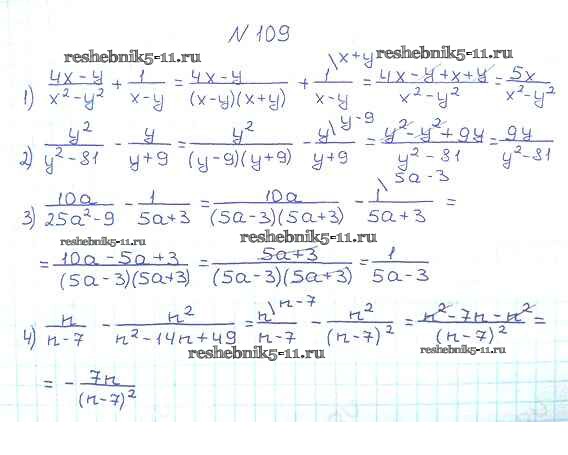 № 109
reshebnik5-11.ru
1) (4x - y)/(x² - y²) + 1/(x - y) = (4x - y)/((x - y)(x + y)) + 1\x+y/(x - y) = (4x - y + x + y)/(x² - y²) = 5x/(x² - y²)
2) y²/(y² - 81) - y/(y + 9) = y²/((y - 9)(y + 9)) - y\y-9/(y + 9) = (y² - y² + 9y)/(y² - 81) = 9y/(y² - 81)
3) 10a/(25a² - 9) - 1/(5a + 3) = 10a/((5a - 3)(5a + 3)) - 1\5a-3/(5a + 3) =
reshebnik5-11.ru reshebnik5-11.ru
= (10a - 5a + 3)/((5a - 3)(5a + 3)) = (5a + 3)/((5a - 3)(5a + 3)) = 1/(5a - 3)
4) n/(n - 7) - n²/(n² - 14n + 49) = n\n-7/(n - 7) - n²/(n - 7)² = (n² - 7n - n²)/(n - 7)² =
reshebnik5-11.ru reshebnik5-11.ru
= - 7n/(n - 7)²